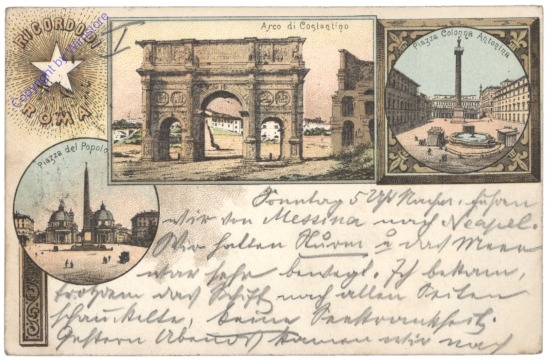 RICORDO DI
ROMA
V
Arco di Costantino
Piazza Colonna Antonina
Piazza del Popolo
Sonntag 5 Uhr Nachm. fuhren
wir von Messina nach Neapel.
Wir hatten Sturm u das Meer
war sehr bewegt. Ich bekam,
trotzdem das Schiff nach allen Seiten
schaukelte, keine Seekrankheit.
Gestern Abend kamen wir nach